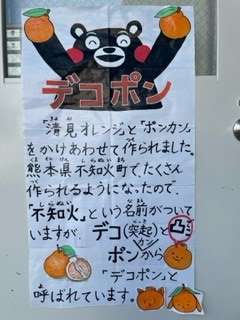 デコポン
「清見オレンジ」と「ポンカン」
をかけあわせて作られました。
熊本県不知火町で、たくさん
作られるようになったので、
「不知火。」という名前がついて
いますが、デコ(突起)と凸
ポンカンから
「デコポン」と
呼ばれています。